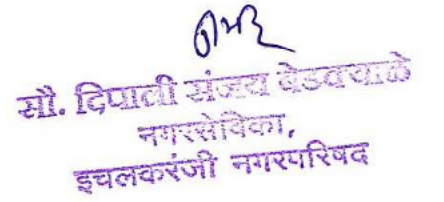 सौ. दिपाली संजय बेडक्याळे
नगरसेविका,
इचलकरंजी नगरपरिषद